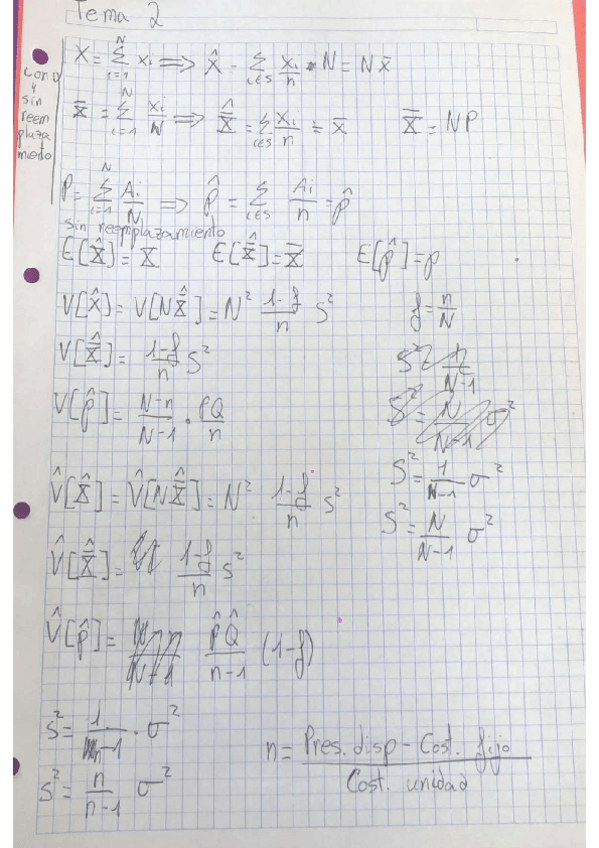 Tema 2
con y sin reemplazamiento
X = Σ_{i=1}^{N} xi ⟹ X̂ - Σ_{i∈S} xi/n · N = N x̄
x̄ = Σ_{i=1}^{N} xi/N ⟹ X̄̂ = Σ_{i∈S} xi/n = x̄    X̄ = NP
P = Σ_{i=1}^{N} Ai/N ⟹ P̂ = Σ_{i∈S} Ai/n = p̂
sin reemplazamiento
E[X̂] = X    E[X̄̂] = X̄    E[p̂] = p
V[X̂] = V[N X̄̂] = N² (1-f)/n S²    f = n/N
V[X̄̂] = (1-f)/n S²
V[p̂] = (N-n)/(N-1) · PQ/n
S² = 1/(N-1) σ²
V̂[X̂] = V̂[N X̄̂] = N² (1-f)/n s²
S² = N/(N-1) σ²
V̂[X̄̂] = (1-f)/n s²
V̂[p̂] = p̂Q̂/(n-1) (1-f)
s² = 1/(n-1) · σ²
n = Pres. disp - Cost. fijo / Cost. unidad
s² = n/(n-1) σ²